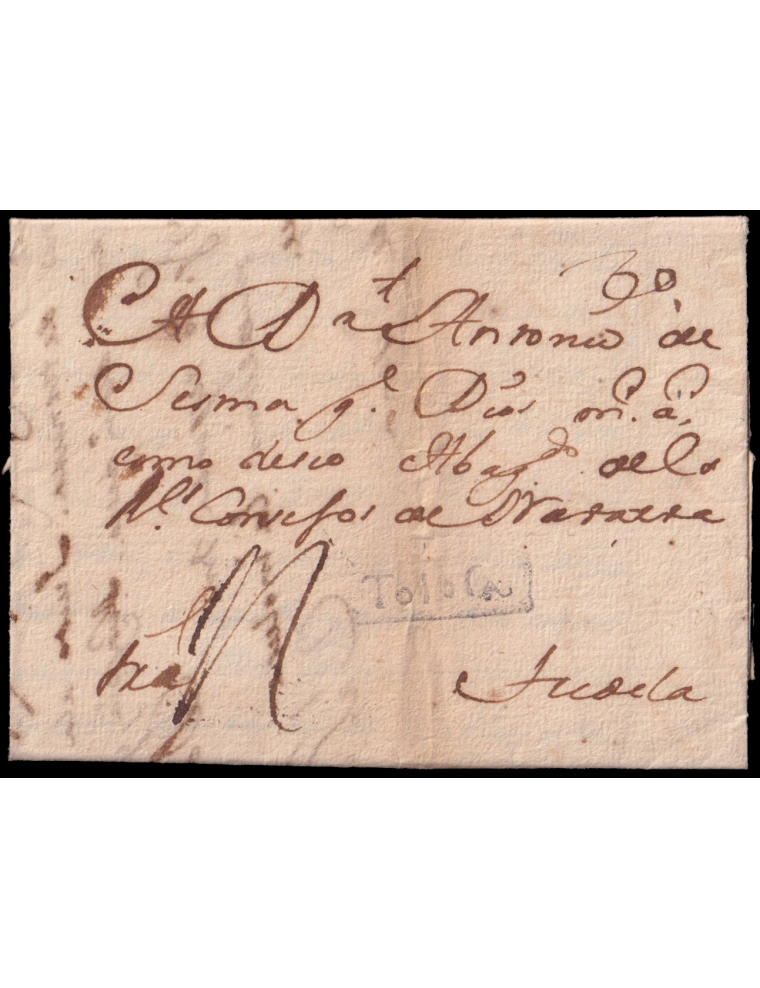 A Dn Antonio de
Sesma q.e Dios m.s a.s
como deseo Abog.do de los
R.s Consejos de Navarra
TOLOSA
Tudela